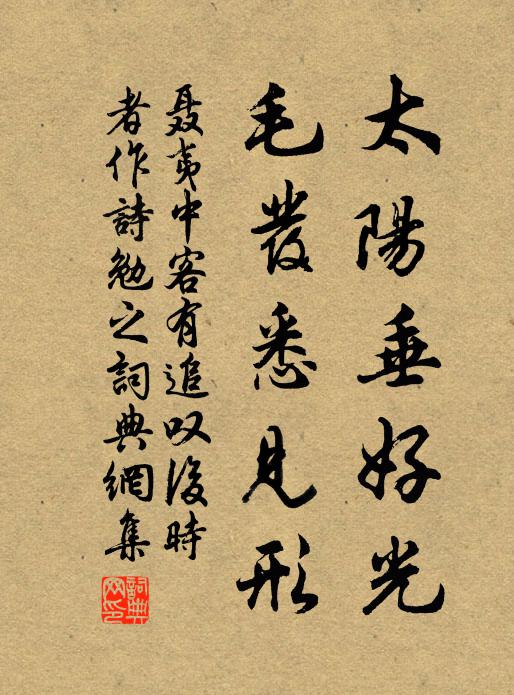 太陽垂好光
毛發悉見形
聂夷中客有追叹後時
者作詩勉之詞典網集
詞典
网印